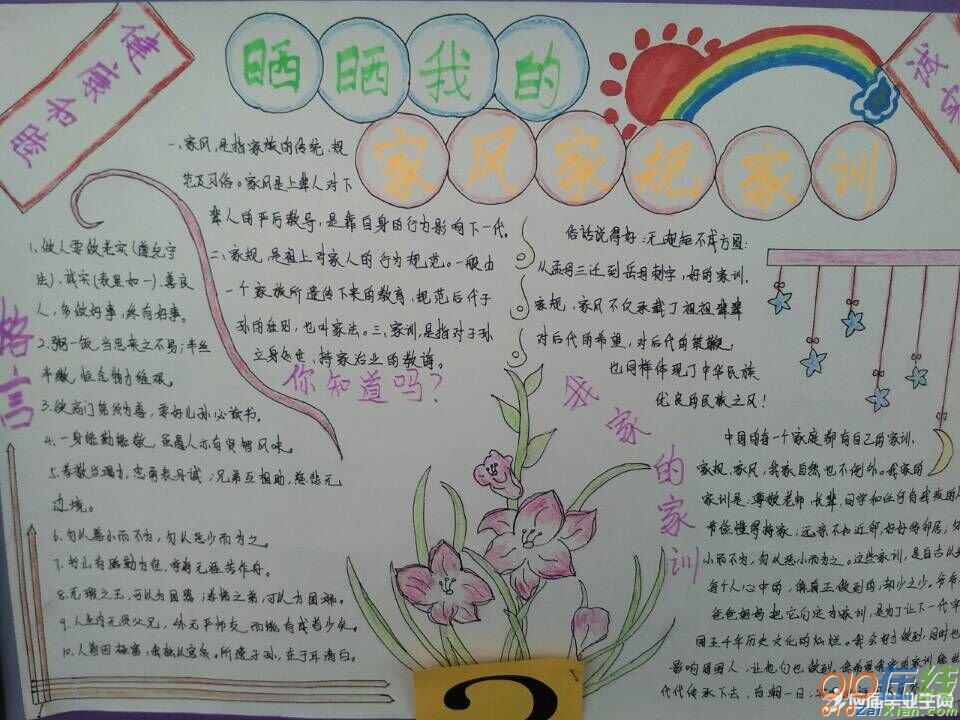 健康和睦
诚实
晒晒我的
家风家规家训
一、家风,是指家族的传统、规
范及习俗。家风是上辈人对下
辈人的严厉教导,是靠自身的行为影响下一代。
二、家规,是祖上对家人的行为规范。一般由
一个家族所遗传下来的教育、规范后代子
孙的准则,也叫家法。三、家训,是指对子孙
立身处世、持家治业的教诲。
你知道吗?
格言
1、做人要做老实(遵纪守
法)、诚实(表里如一)、善良
人,多做好事,终有好事。
2、粥一饭,当思来之不易;半丝
半缕,恒念物力维艰。
3、欲高门第须为善,要好儿孙必读书。
4、一身能勤能敬,虽愚人亦有贤智风味。
5、孝敬当竭力,忠勇表丹诚;兄弟互相助,慈悲无
边境。
6、勿以善小而不为,勿以恶少而为之。
7、书山有路勤为径,学海无涯苦作舟。
8、无瑕之玉,可以为国器;孝悌之弟,可以为国瑞。
9、人生内无贤父兄,外无严师友,而能有成者少矣。
俗话说得好:无规矩不成方圆:
从孟母三迁到岳母刺字,好的家训、
家规、家风不仅承载了祖祖辈辈
对后代的希望,对后代的鞭策,
也同样体现了中华民族
优良的民族之风!
我家的家训
中国的每一个家庭都有自己的家训、
家规、家风,我家自然也不例外。我家的
家训是:尊敬老师、长辈、同学和任何
节俭懂得持家;远亲不如近邻,好好待邻居;勿
小而不为,勿以恶小而为之。这些家训,是自古以来
每个人心中的,像真正做到的,却少之少。爷爷
爸爸妈妈把它们定为家训,是为了让下一代
国五千年历史文化的灿烂。我会努力做到,同时也
影响周围人,让他们也做到。
代代传承下去,
?
010在线
010zaixian.com
应届毕业生网